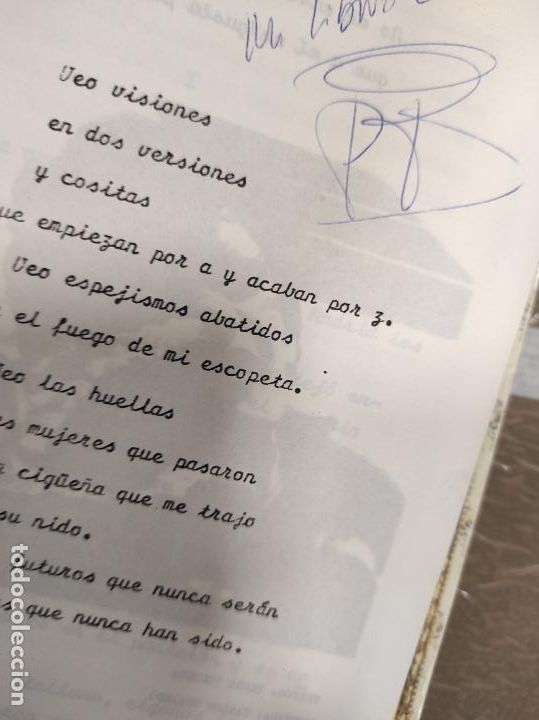 mi libro
Veo visiones
en dos versiones
y cositas
ue empiezan por a y acaban por z.
Veo espejismos abatidos
el fuego de mi escopeta.
eo las huellas
s mujeres que pasaron
a cigüeña que me trajo
su nido.
uturos que nunca serán
s que nunca han sido.
todocoleccion.net